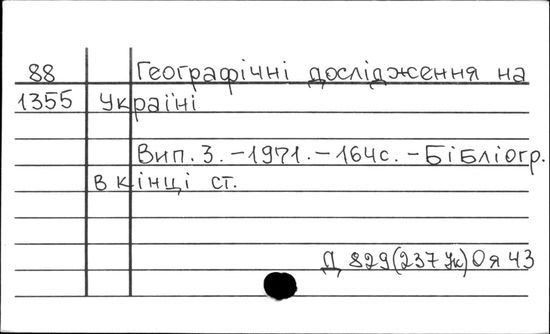 88 Географічні дослідження на
1355 Україні
Вип. 3. -1971. -164с. -Бібліогр.
в кінці ст.
Д 829(237 Ук) 0 я 43